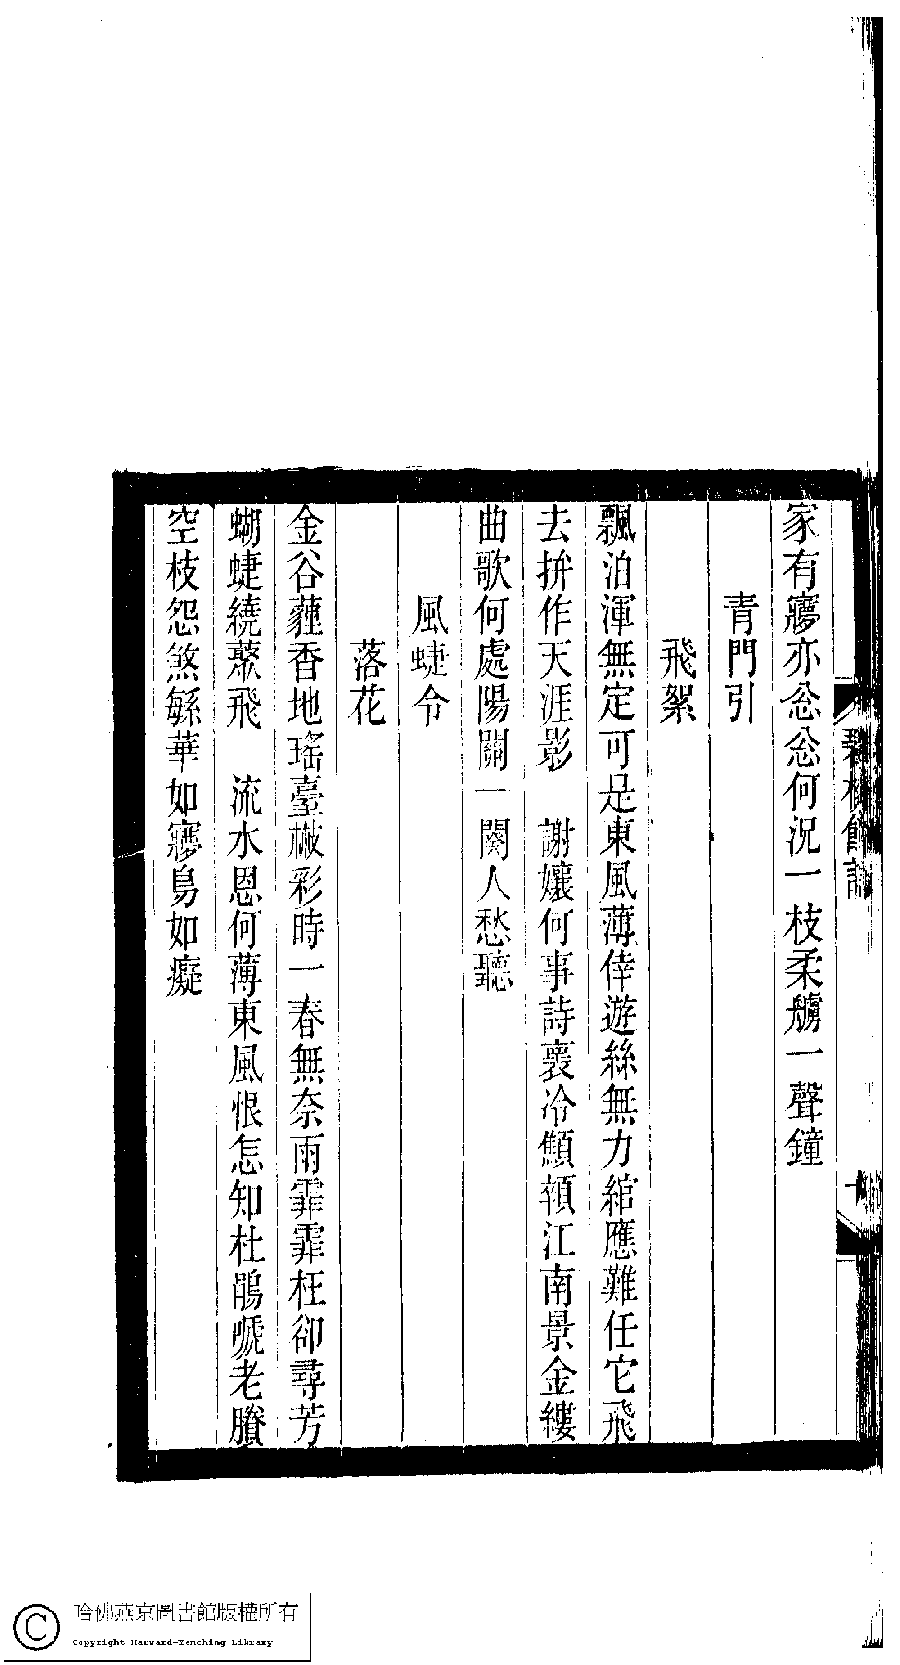 家有㝱亦忩忩何況一枝柔艣一聲鐘
青門引
飛絮
飄泊渾無定可是東風薄倖遊絲無力綰應難任它飛
去拚作天涯影　謝孃何事詩裏冷顦顇江南景金縷
曲歌何處陽關一闋人愁聽
風蜨令
落花
金谷薶香地瑤臺㪔彩時一春無奈雨霏霏枉卻尋芳
蝴蜨繞藂飛　流水恩何薄東風恨怎知杜鵑嗁老賸
空枝怨煞緐華如㝱舄如癡
哈佛燕京圖書館版權所有
Copyright Harvard-Yenching Library